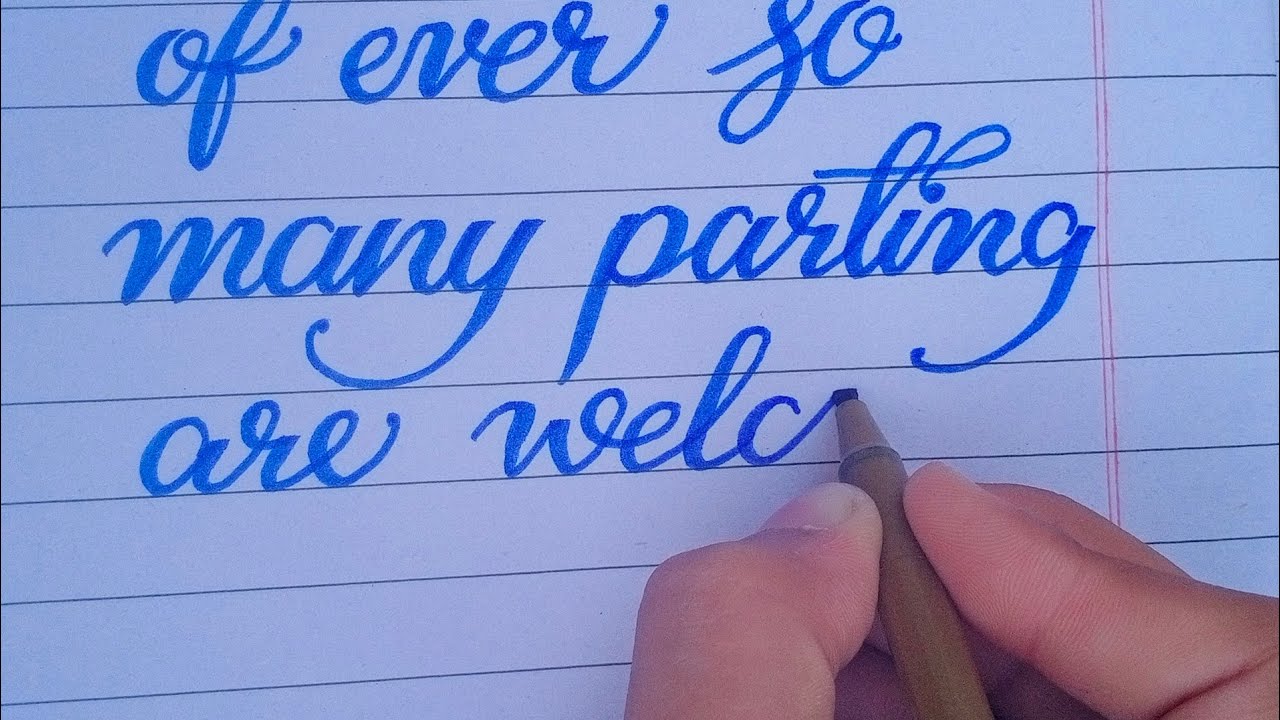 of ever so
many parting
are welc